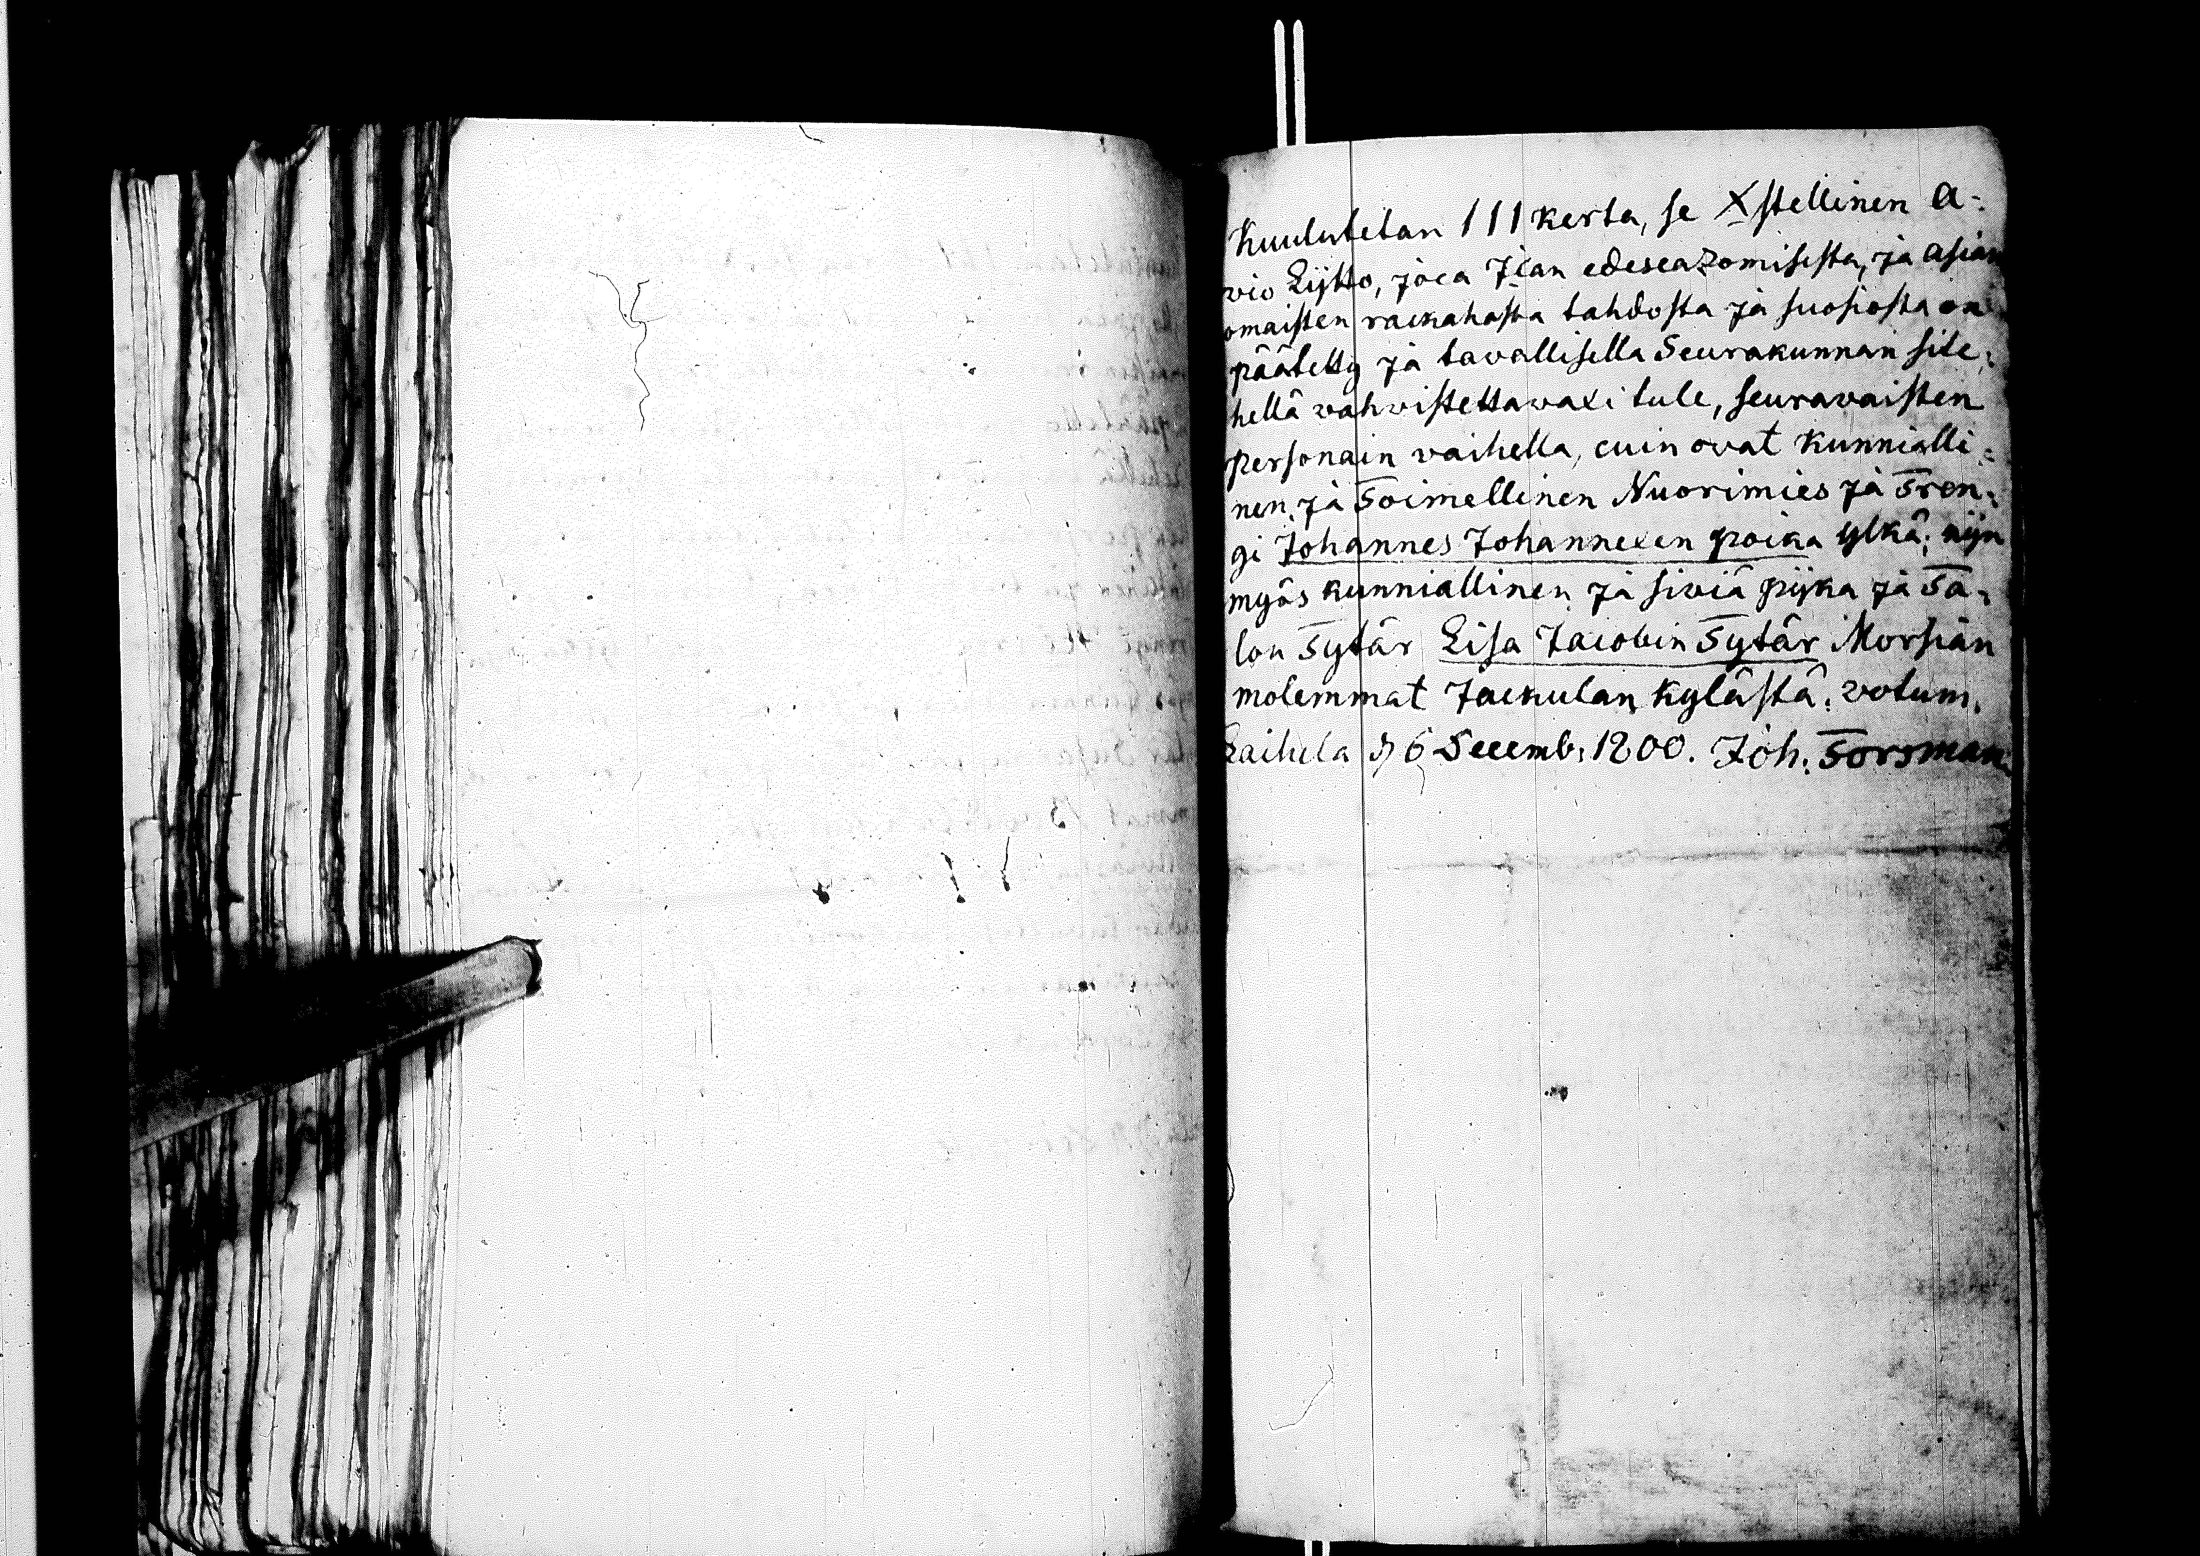 Kuulutetan III kerta, se Xstellinen A-
vio Lijtto, joca Jlan edeseazomisesta, ja asian
omaisten rackahasta tahdosta ja suosiosta on
päätetty ja tavallisella Seurakunnan site-
hellä vahvistettavaxi tule, seuravaisten
personain vaihella, cuin ovat kunnialli-
nen ja Toimellinen Nuorimies ja Tren-
gi Johannes Johannexen poika ylkä; nijn
myös kunniallinen ja siviä pijka ja Ta-
lon Tytär Lisa Jacobin Tytär Morsian
molemmat Jackulan kylästä. votum.
Laihela d 6 Decemb: 1800. Joh. Forsman